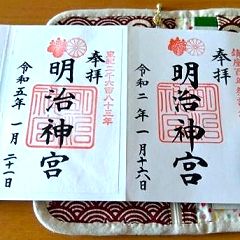 奉拝
皇紀二千六百八十三年
明治神宮
令和五年一月二十一日
奉拝
明治神宮
令和二年一月十六日